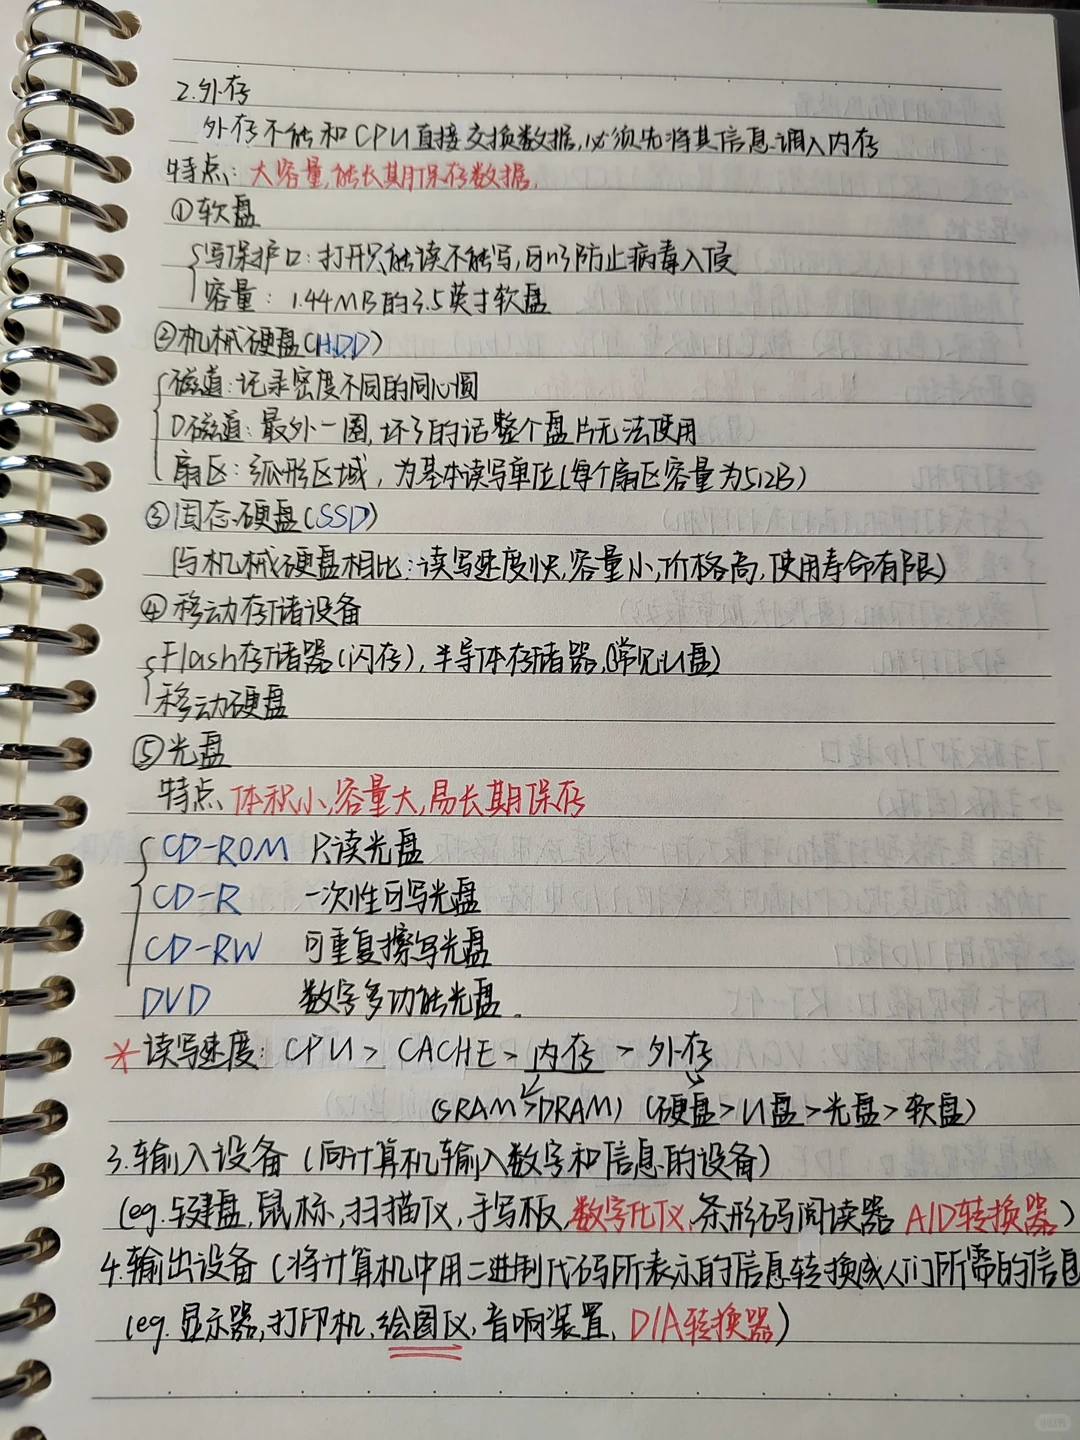 2.外存
外存不能和CPU直接交换数据,必须先将其信息调入内存
特点:大容量,能长期保存数据.
①软盘
写保护口:打开只能读不能写,可以防止病毒入侵
容量:1.44MB的3.5英寸软盘
②机械硬盘(HDD)
磁道:记录密度不同的同心圆
0磁道:最外一圈,坏了的话整个盘片无法使用
扇区:弧形区域,为基本读写单位(每个扇区容量为512B)
③固态硬盘(SSD)
(与机械硬盘相比:读写速度快,容量小,价格高,使用寿命有限)
④移动存储设备
Flash存储器(闪存),半导体存储器,(常见U盘)
移动硬盘
⑤光盘
特点 体积小,容量大,易长期保存
CD-ROM 只读光盘
CD-R 一次性可写光盘
CD-RW 可重复擦写光盘
DVD 数字多功能光盘.
*读写速度:CPU>CACHE>内存>外存
(SRAM>DRAM) (硬盘>U盘>光盘>软盘)
3.输入设备(向计算机输入数字和信息的设备)
(eg.键盘,鼠标,扫描仪,手写板,数字化仪,条形码阅读器 A/D转换器)
4.输出设备(将计算机中用二进制代码所表示的信息转换成人们所需的信息
(eg.显示器,打印机,绘图仪,音响装置,D/A转换器)
小红书